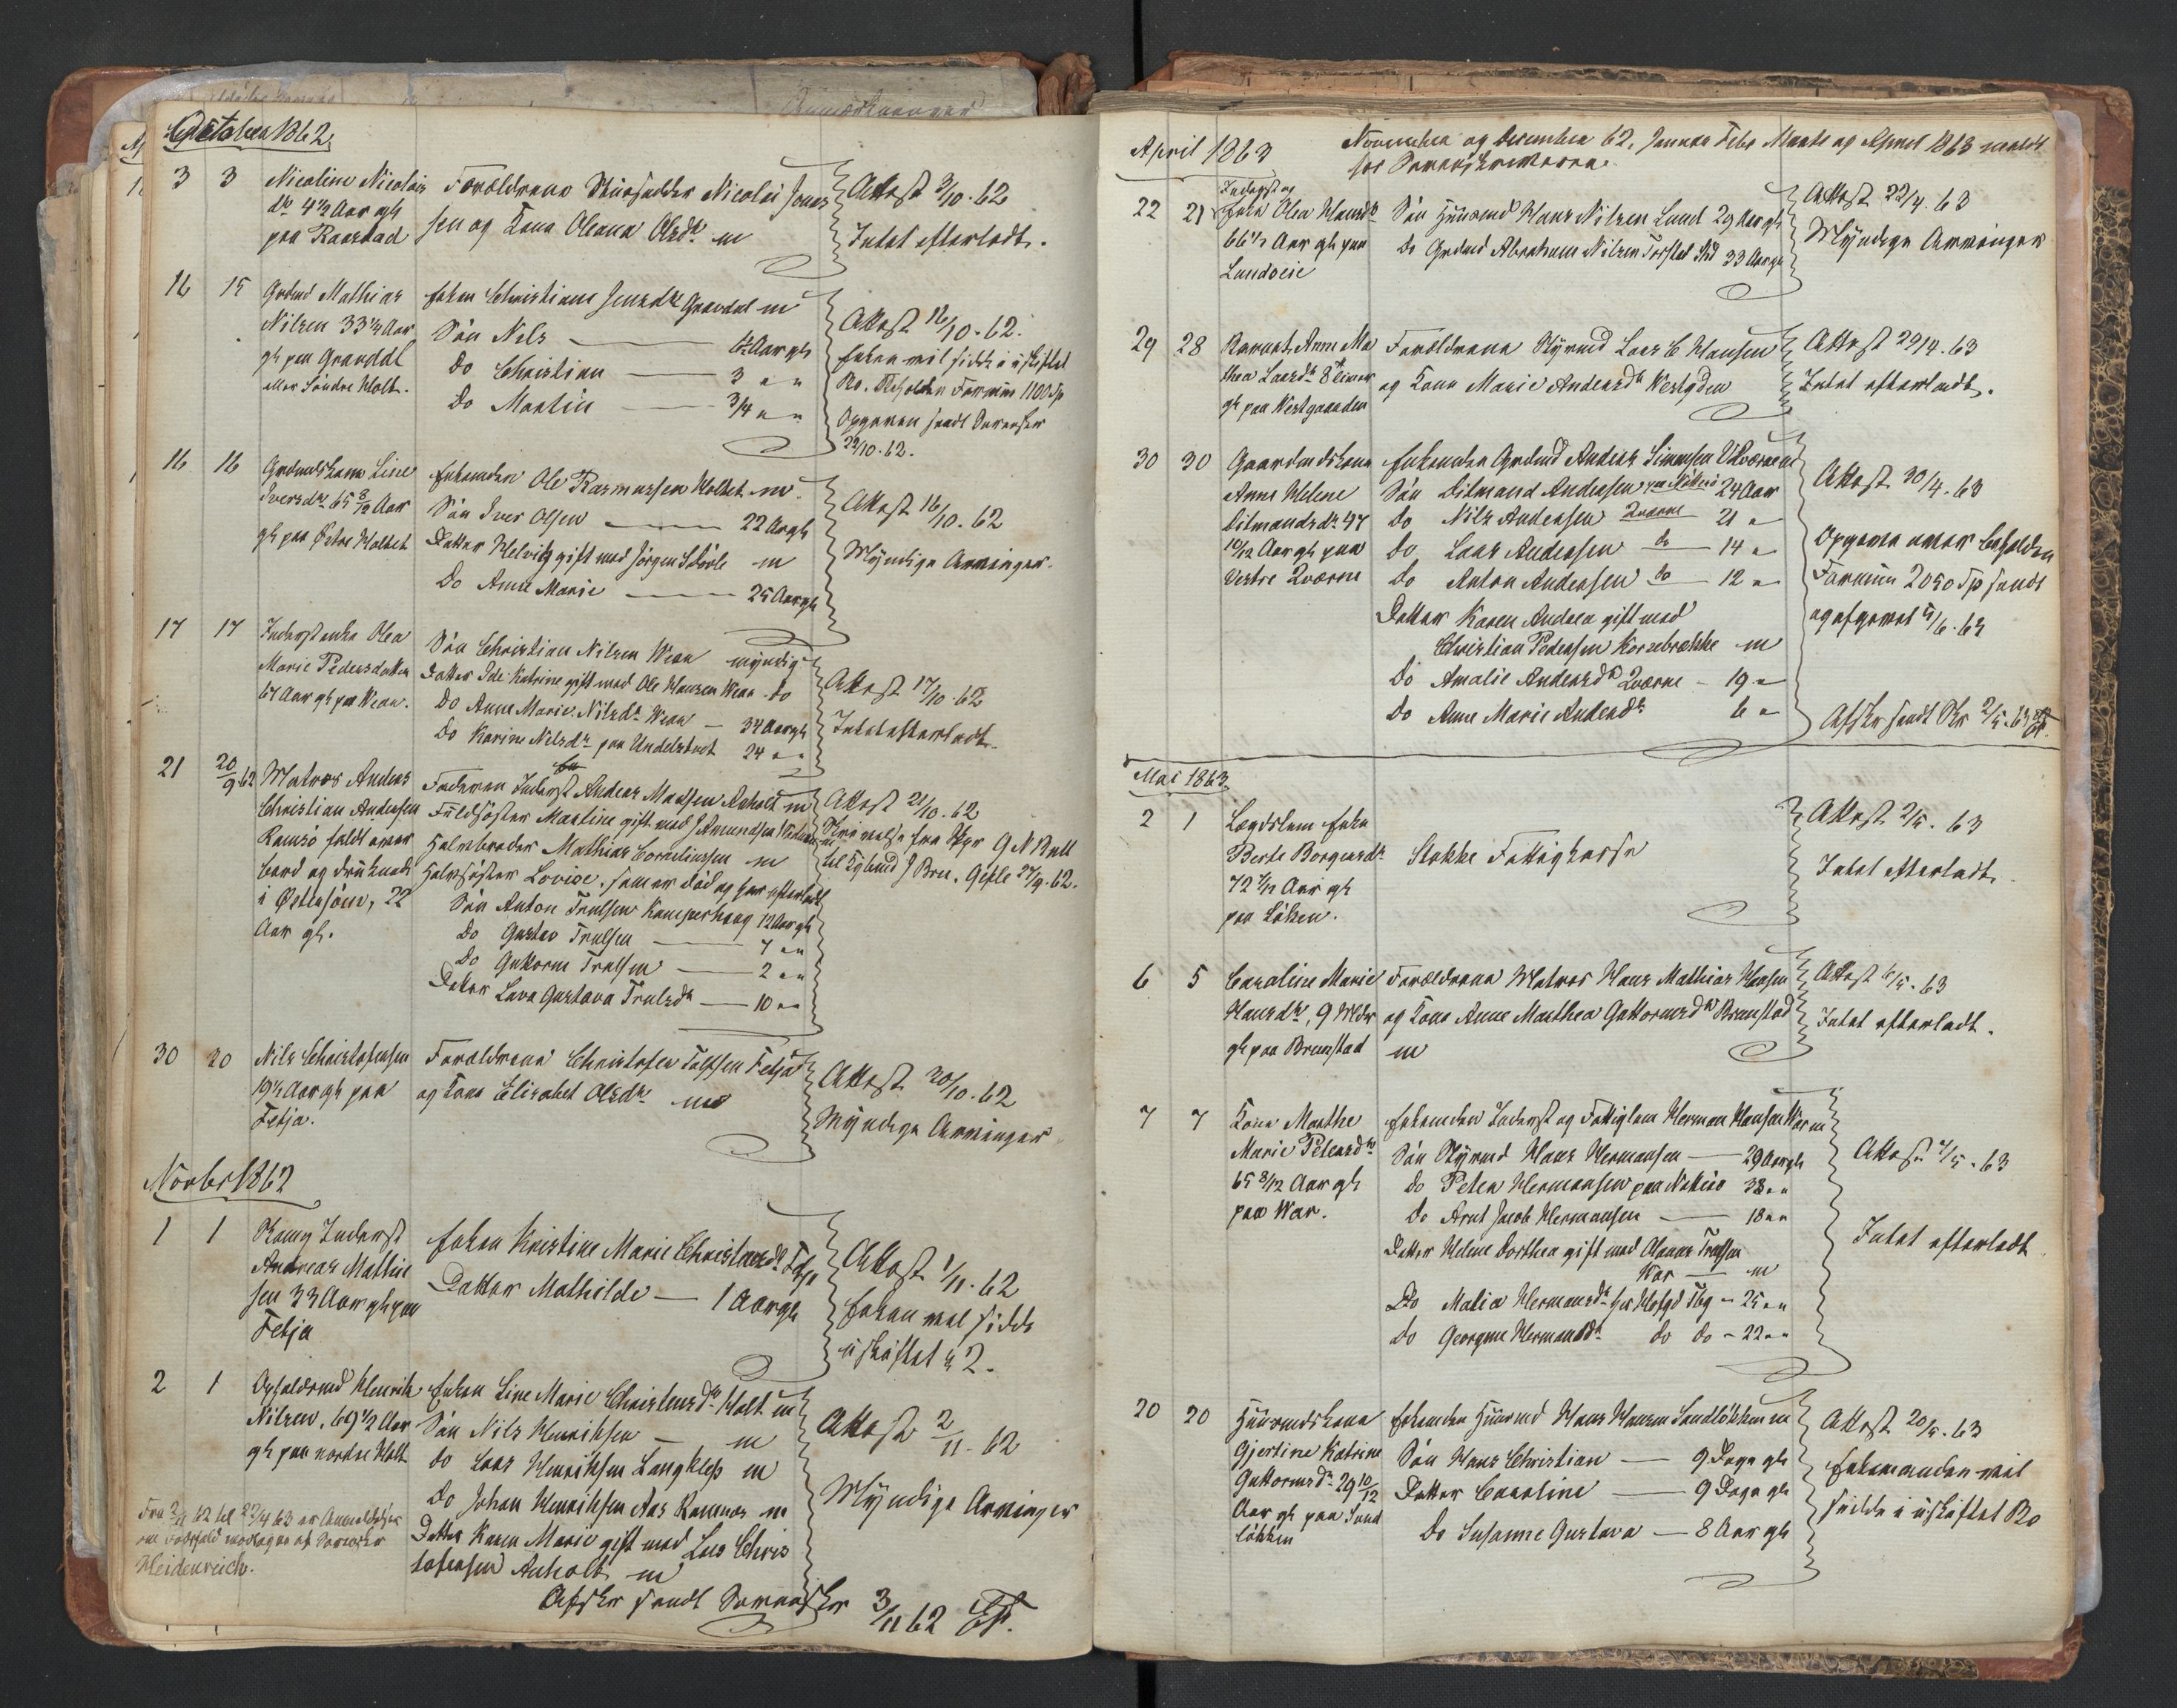 October 1862.
3 3 Nicoline Nicolais
dr 4½ Aar gl
paa Raastad
Forældrene Huusfolder Nicolai Jens
sen og Kona Oleana Olsdr m
Attest 3/10. 62
Intet efterladt.
16 15 Grdmd Mathias
Nilsen 33½ Aar
gl paa Gravdal
eller Søndre Holt.
Enken Christiane Jensdr Gravdal m
Søn Nils
Aar gl
Do Christian — 3 " "
Do Martin — 3/4 " "
Attest 16/10. 62.
Enken vil sidde i uskiftet
Bo. Beholden Formue 1100 Sp
Opgaven sendt Sorenskr
22/10. 62.
16 16 Grdmdskone Line
Iversdr 65 8/12 Aar
gl paa Østre Holtet
Enkemanden Ole Rasmussen Holtet m
Søn Iver Olsen — 22 Aar gl
Datter Helvig gift med Jørgen m
Do Anne Marie — 25 Aar gl
Attest 16/10. 62
Myndige Arvinger.
17 17 Inderstenke Olea
Marie Pedersdatter
Aar gl paa Wear.
Søn Christian Nilsen Wear myndig
Datter Ide Katrine gift med Ole Hansen Wear do
Do Anne Marie Nilsdr Wear — 34 Aar gl
Do Karine Nilsdr paa Undelstvet 24 " "
Attest 17/10. 62
Intet efterladt.
21 20/9 62 Matros Anders
Christian Andersen
Ramsø faldt over
bord og druknede
i Østersøen, 22
Aar gl.
Faderen Inderst Anders Madsen Anholt m
Fuldsøster Martine gift med J Amundsen
Halvbroder Mathias Corneliussen m
Halvsøster Lovise, som er død og har efterladt
Søn Anton Trulsen Kamperhaug 12 Aar gl
Do Gustav Trulsen — 7 " "
Do Guttorm Trulsen — 2 " "
Datter Lava Gustava Trulsdr — 10 " "
Attest 21/10. 62
Skrivelse fra Skpr G N Bull
til J Bru. Gefle 27/9. 62.
30 20 Nils Christofersen
19½ Aar gl paa
Tetja.
Forældrene Christofer Tolfsen Tetja
og Kona Elisabet Olsdr m
Attest 30/10. 62
Myndige Arvinger
Novbr 1862
1 1 Inderst
Andreas Mathie
sen 33 Aar gl paa
Tetja
Enken Kristine Marie Christensdr
Datter Mathilde — 1 Aar gl
Attest 1/11. 62
Enken vil sidde
i uskiftet Bo.
2 1 Opholdsmd Henrik
Nilsen, 69½ Aar
gl paa nordre Holt
Enken Line Marie Christensdr Holt m
Søn Nils Henriksen — m
Do Lars Henriksen Langkleps m
Do Johan Henriksen Aas Ramnæs m
Datter Karen Marie gift med Lars Chris
tofersen Anholt m
Attest 2/11. 62
Myndige Arvinger
Fra 2/11 62 til 22/4 63 er Anmeldelser
om Dødsfald modtagne af Sorenskr
Heidenreich.
Afskr sendt Sorenskr 3/11 62
April 1863
November og December 62, Januar Febr Marts og April 1863 meldt
for Sorenskriveren.
22 21 Inderst og
Enke Olea Hansdr
66½ Aar gl paa
Lundseie
Søn Huusmd Hans Nilsen Lund 29 Aar gl
Do Grdmd Abraham Nilsen 33 Aar gl
Attest 22/4. 63
Myndige Arvinger
29 28 Barnet Anne Ma
thea Larsdr 8 Timer
gl paa Vestgaarden
Forældrene Styrmd Lars C Hansen
og Kona Marie Andersdr Vestgden
Attest 29/4. 63
Intet efterladt.
30 30 Gaardmdskone
Anne Helene
Ditmandsdr 47
10/12 Aar gl paa
Vestre Qværne
Enkemanden Grdmd Anders Simensen Qværne m
Søn Ditmand Andersen paa Nøtterø 24 Aar
Do Nils Andersen Qværne 21 "
Do Lars Andersen do — 14 "
Do Anton Andersen do — 12 "
Datter Karen Andrea gift med
Christian Pedersen Korsebrekke m
Do Amalie Andersdr Qværne — 19 "
Do Anne Marie Andersdr 6 "
Attest 30/4. 63
Opgave over beholden
Formue 2050 Sp sendt
Afskr sendt Skr 2/5. 63
Mai 1863.
2 1 Lægdslem Enke
Berte Borgersdr
72 7/12 Aar gl
paa Løken.
Stokke Fattigkasse
Attest 2/5. 63
Intet efterladt.
6 5 Caroline Marie
Hansdr, 9 Mdr
gl paa Brunstad
Forældrene Matros Hans Mathias Hansen
og Kona Anne Marthea Guttormsdr Brunstad
m
Attest 6/5. 63
Intet efterladt.
7 7 Kona Marthe
Marie Petersdr
65 8/12 Aar gl
paa War.
Enkemanden Inderst og Fattiglem Herman Hansen War m
Søn Styrmd Hans Hermansen — 29 Aar gl
Do Peter Hermansen paa Nøtterø 38 " "
Do Arnt Jacob Hermansen — 18 " "
Datter Helene Dorthea gift med Trulsen
War — m
Do Matia Hermansdr Tbg — 25 " "
Do Georgine Hermansdr do do — 22 " "
Attest 7/5. 63
Intet efterladt
20 20 Huusmdskone
Gjertine Katrine
Guttormsdr 29 10/12
Aar gl paa Sand
løkken
Enkemanden Huusmd Hans Hansen Sandløkken m
Søn Hans Christian — 9 Dage gl
Datter Caroline — 9 Dage gl
Do Susanne Gustava — 8 Aar gl
Attest 20/5. 63
Enkemanden vil
sidde i uskiftet Bo